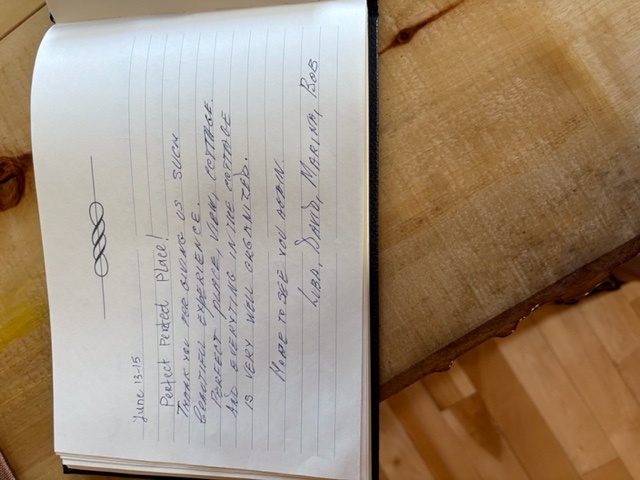 June 13-15
Perfect Perfect Place!
THANK YOU FOR GIVING US SUCH
BEAUTIFUL EXPERIENCE.
PERFECT PLACE, VIEW, COTTAGE.
AND EVERYTING IN THE COTTAGE
IS VERY WELL ORGANIZED.
HOPE TO SEE YOU AGAIN
LUBA, DAVID, MARINA, BOB